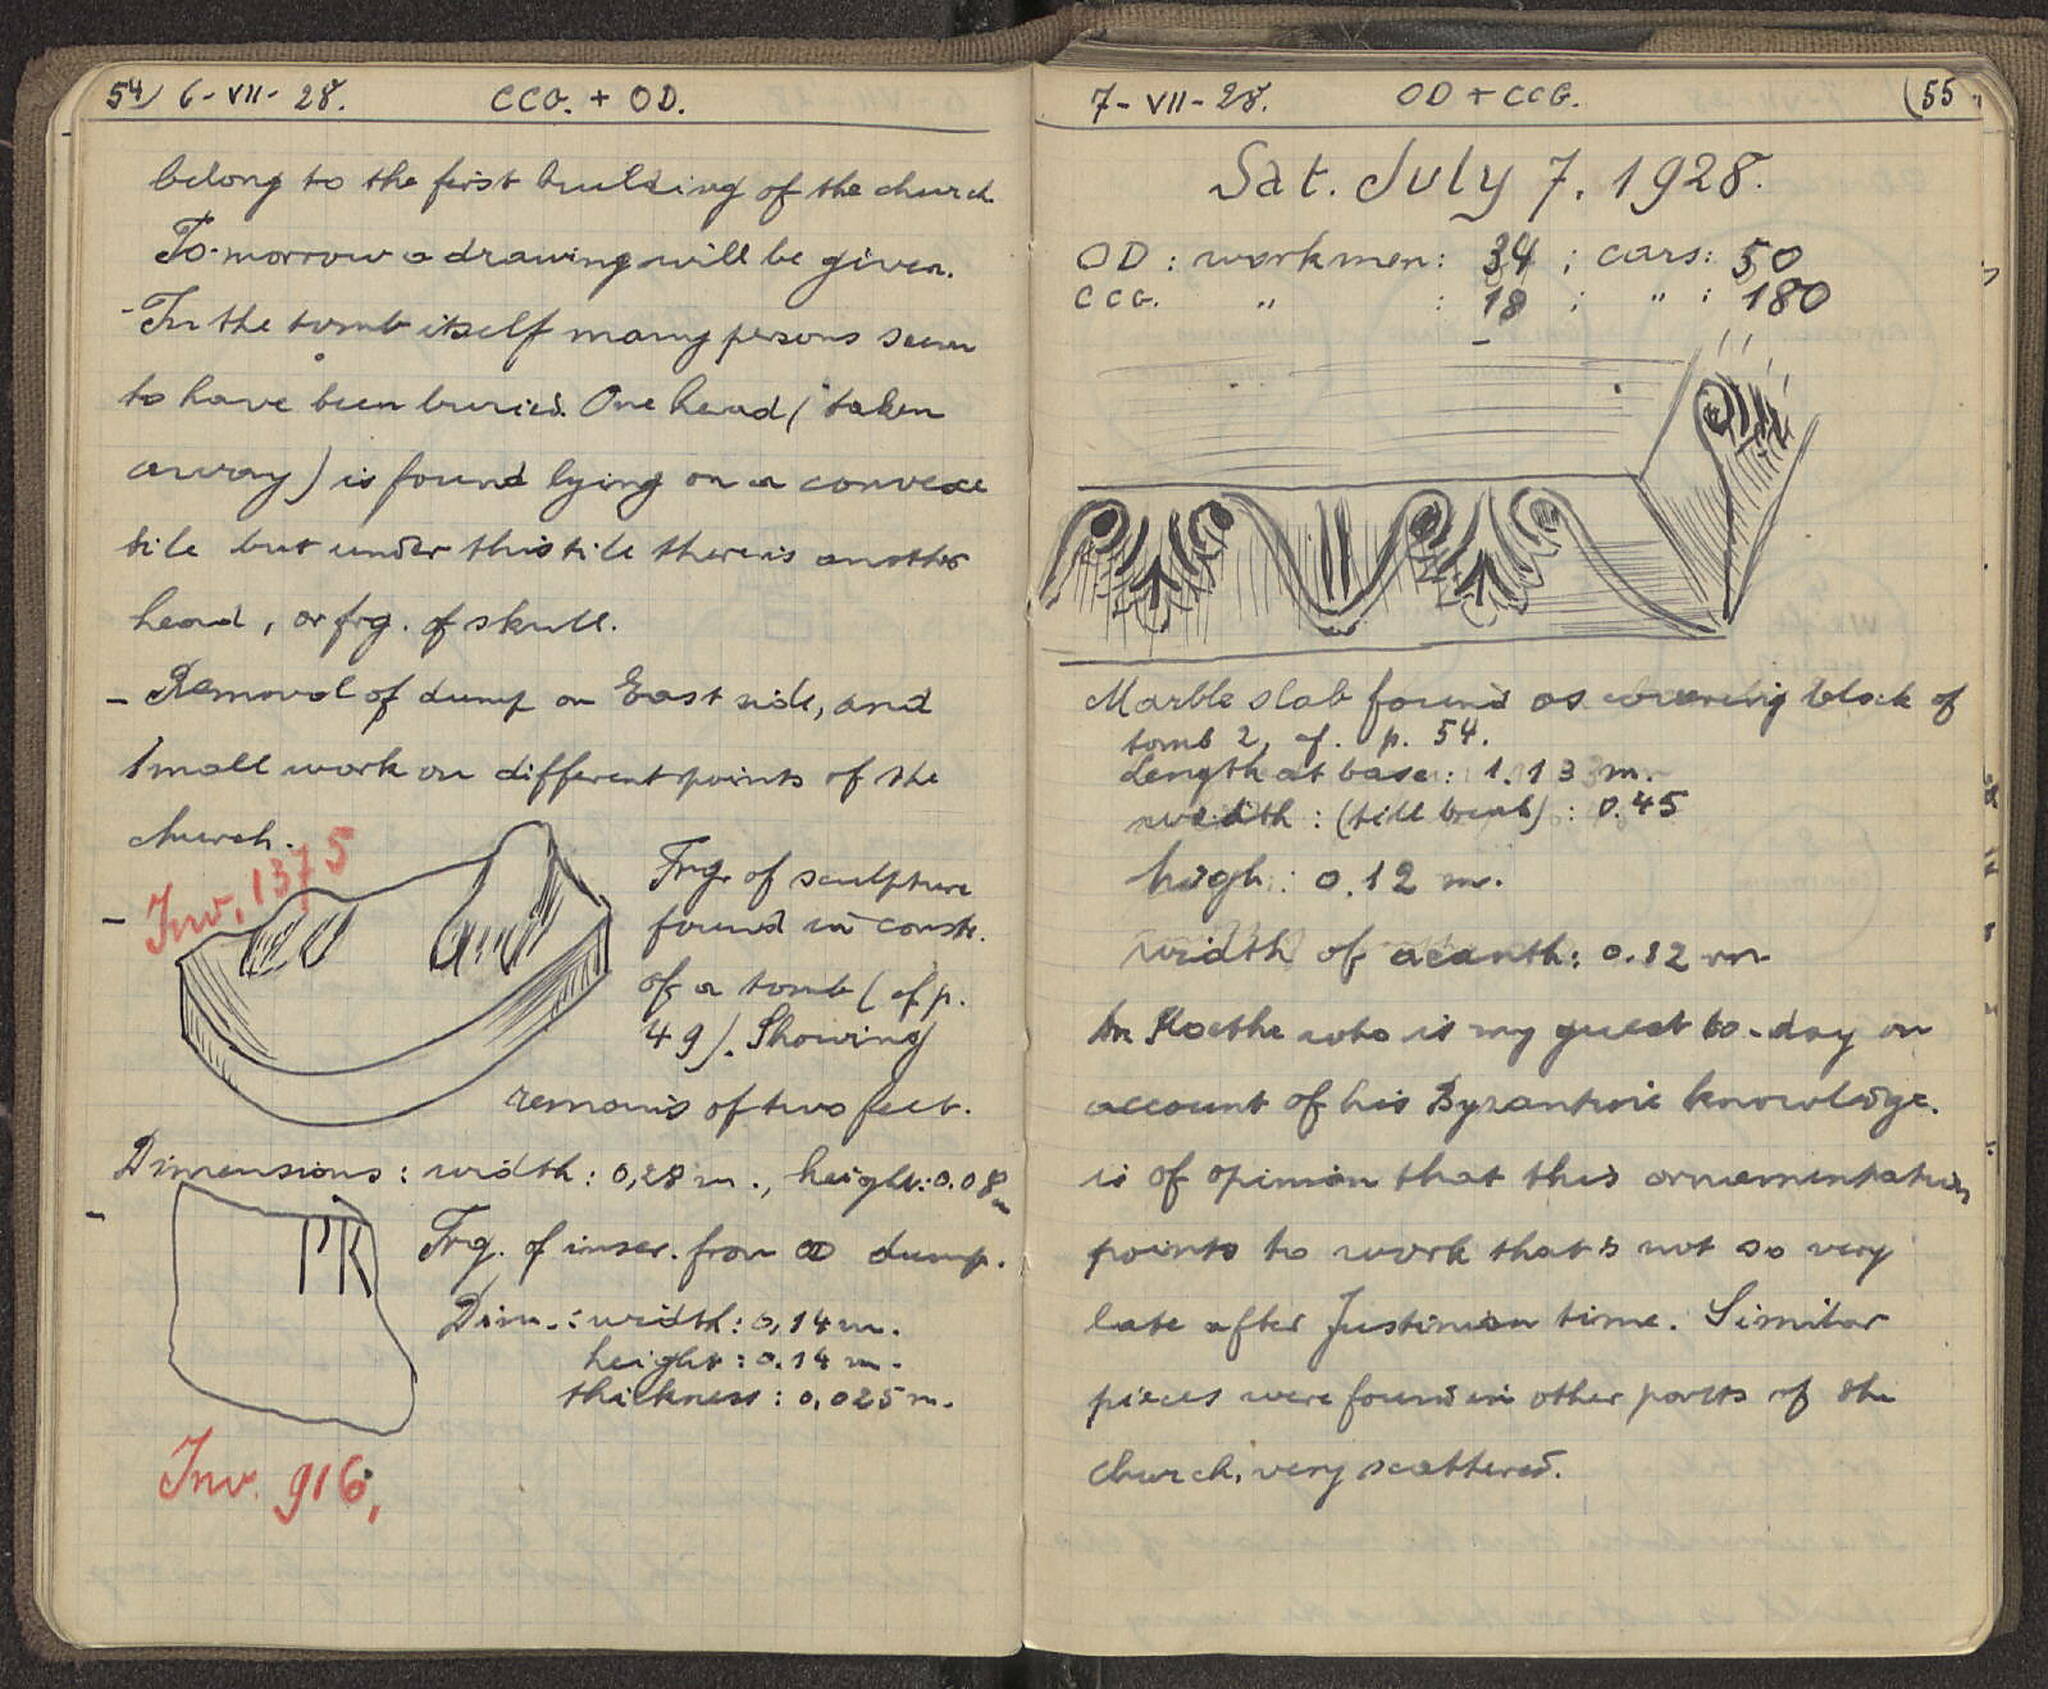 54) 6-VII-28. CCG. + OD.
belong to the first building of the church.
To-morrow a drawing will be given.
- In the tomb itself many persons seem
to have been buried. One head ( taken
away) is found lying on a convexe
tile but under this tile there is another
head, or frg. of skull.
- Removal of dump on East side, and
small work on different points of the
church.
Inv. 1375
- Frg. of sculpture
found in constr.
of a tomb ( cf p.
49). Showing
remains of two feet.
Dimensions: width: 0,28 m., height: 0.08 m
- PK
Frg. of inscr. from dump.
Dim.: width: 0,14 m.
height: 0.14 m.
thickness: 0,025 m.
Inv. 916.
7-VII-28. OD + CCG. (55
Sat. July 7. 1928.
OD: workmen: 34 ; cars: 50
CCG. " : 18 ; " : 180
Marble slab found as covering block of
tomb 2, cf. p. 54.
Length at base: 1.13 m.
width: (till break): 0.45
high: 0.12 m.
width of acanth: 0.12 m
Koethe who is my guest to-day on
account of his Byzantine knowledge.
is of opinion that this ornementation
points to work that's not so very
late after Justinian time. Similar
pieces were found in other parts of the
church, very scattered.